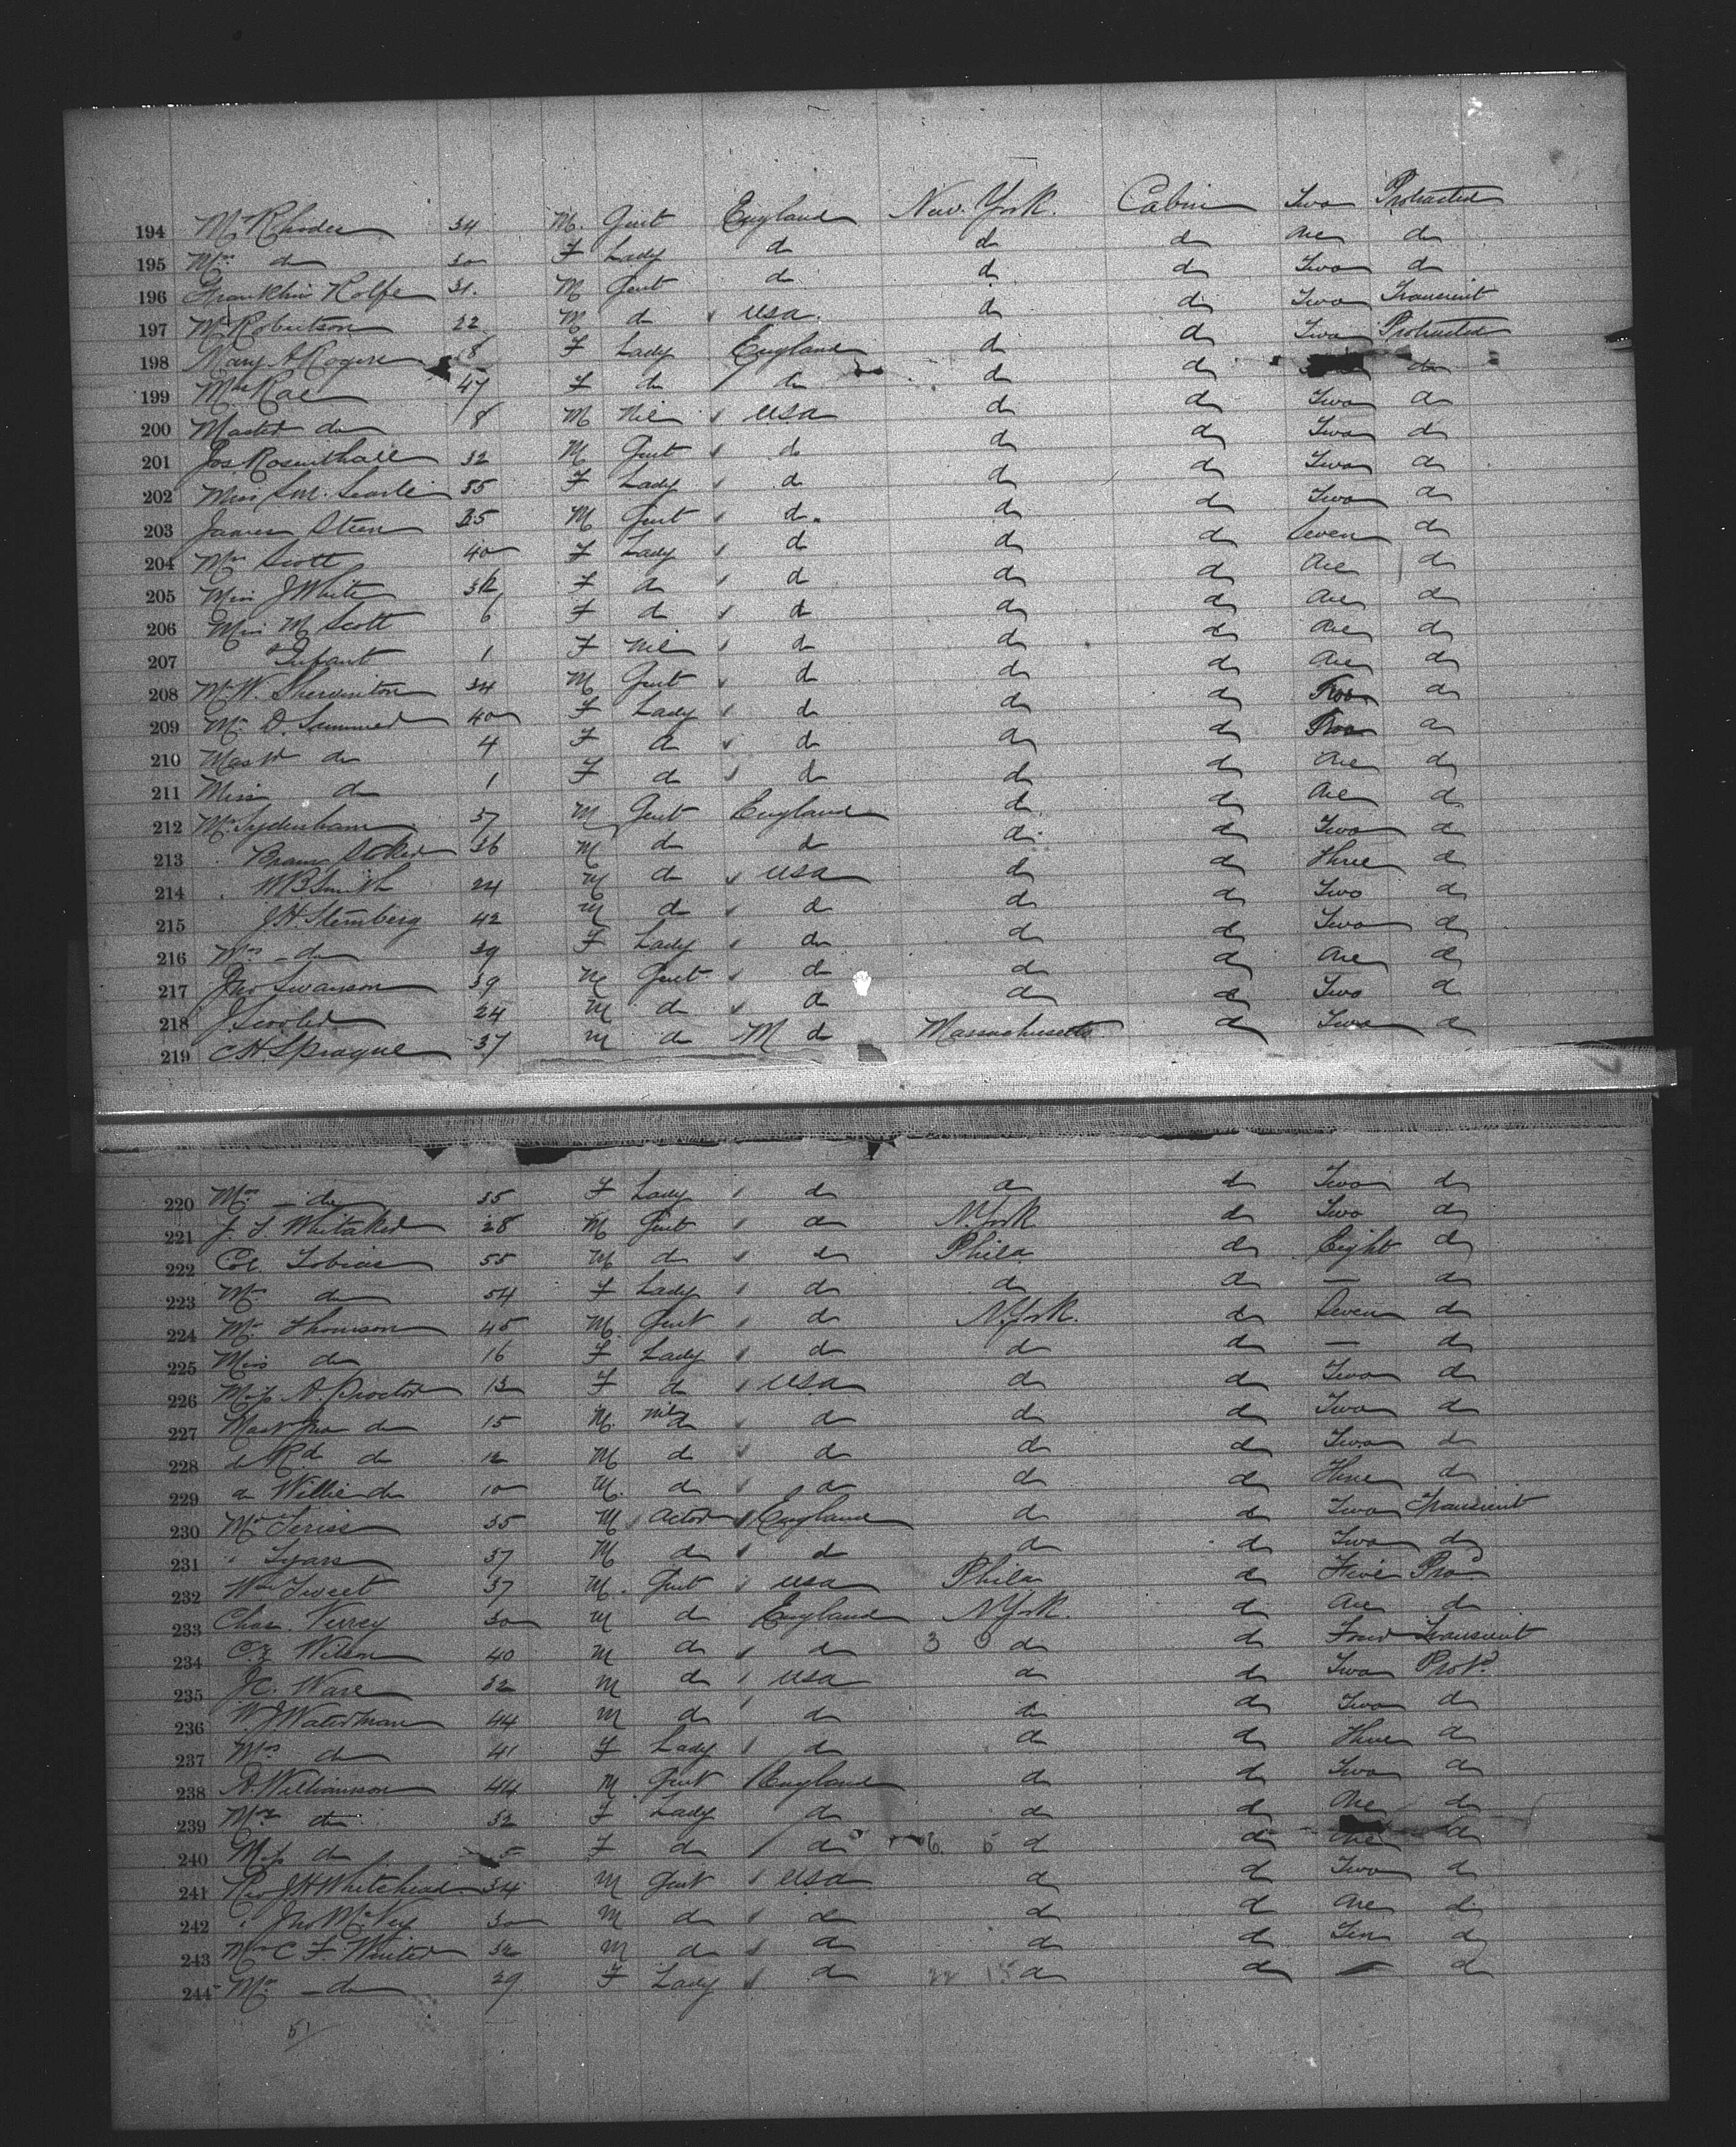 194 Mr Rhodes 34 M. Gent England New York. Cabin Two Protracted
195 Mrs do 30 F Lady do do do One do
196 Franklin Rolfe 31. M Gent do do do Two do
197 Mr Robertson 22 M do USA. do do Two Transient
198 Mary A Rogers 18 F Lady England do do Two Protracted
199 Mrs Rae 47 F do do do do do
200 Master do 8 M Nil USA do do Two do
201 Jos Rosenthall 32 M Gent do do do Two do
202 Miss S.M. Searle 55 F Lady do do do Two do
203 James Steen 35 M Gent do do do Two do
204 Mrs Scott 40 F Lady do do do Seven do
205 Miss J White F do do do do One do
206 Miss M Scott 6 F do do do do One do
207 " Infant 1 F Nil do do do One do
208 Mr W. Shervinton 34 M Gent do do do One do
209 D. Summer 40 F Lady do do do do
210 Mastr do 4 F do do do do do
211 Miss do 1 F do do do do One do
212 Mr Sydenham 37 M Gent England do do One do
213 Bram Stoker 36 M do do do do Two do
214 " W B Smith 24 M do USA do do Three do
215 J.H. Sternberg 42 M do do do do Two do
216 Mrs - do 39 F Lady do do do Two do
217 Jno Swanson 39 M Gent do do do One do
218 J 24 M do do do do Two do
219 C.H. Sprague 37 M do M do Massachusetts do Two do
220 Mrs - do 35 F Lady do do do Two do
221 J. S. Whitaker 28 M Gent do N. York do Two do
222 Col. Tobias 55 M do do Phila do Eight do
223 Mrs do 54 F Lady do do do — do
224 Mr Thomson 45 M. Gent do N. York. do Seven do
225 Miss do 16 F Lady do do do — do
226 Miss A Proctor 13 F do USA do do Two do
227 Mast Jno do 15 M. Nil do do do do Two do
228 do Rd do 12 M do do do do Two do
229 do Willie do 10 M. do do do do Three do
230 Mr Teriss 35 M Actor England do do Two Transient
231 " Tyars 37 M do do do do Two do
232 Wm Tweet 37 M. Gent USA Phila do Five Pro
233 Chas. Verrey 30 M do England N York. do One do
234 Wilson 40 M do do 3 0 do do Four Transient
235 J.C. Ware 32 M do USA do do Two Prot
236 W J Waterman 44 M do do do do Two do
237 Mrs do 41 F Lady do do do Three do
238 A. Williamson 44 M Gent England do do Two do
239 Mrs do 32 F Lady do do do One do
240 Miss do 5 F do do 6. 5 do do One do
241 Rev J H Whitehead 34 M Gent USA do do Two do
242 " Jno McVey 30 M do do do do One do
243 C F 32 M do do do do Ten do
244 Mrs - do 29 F Lady do 22 15 do do — do
51